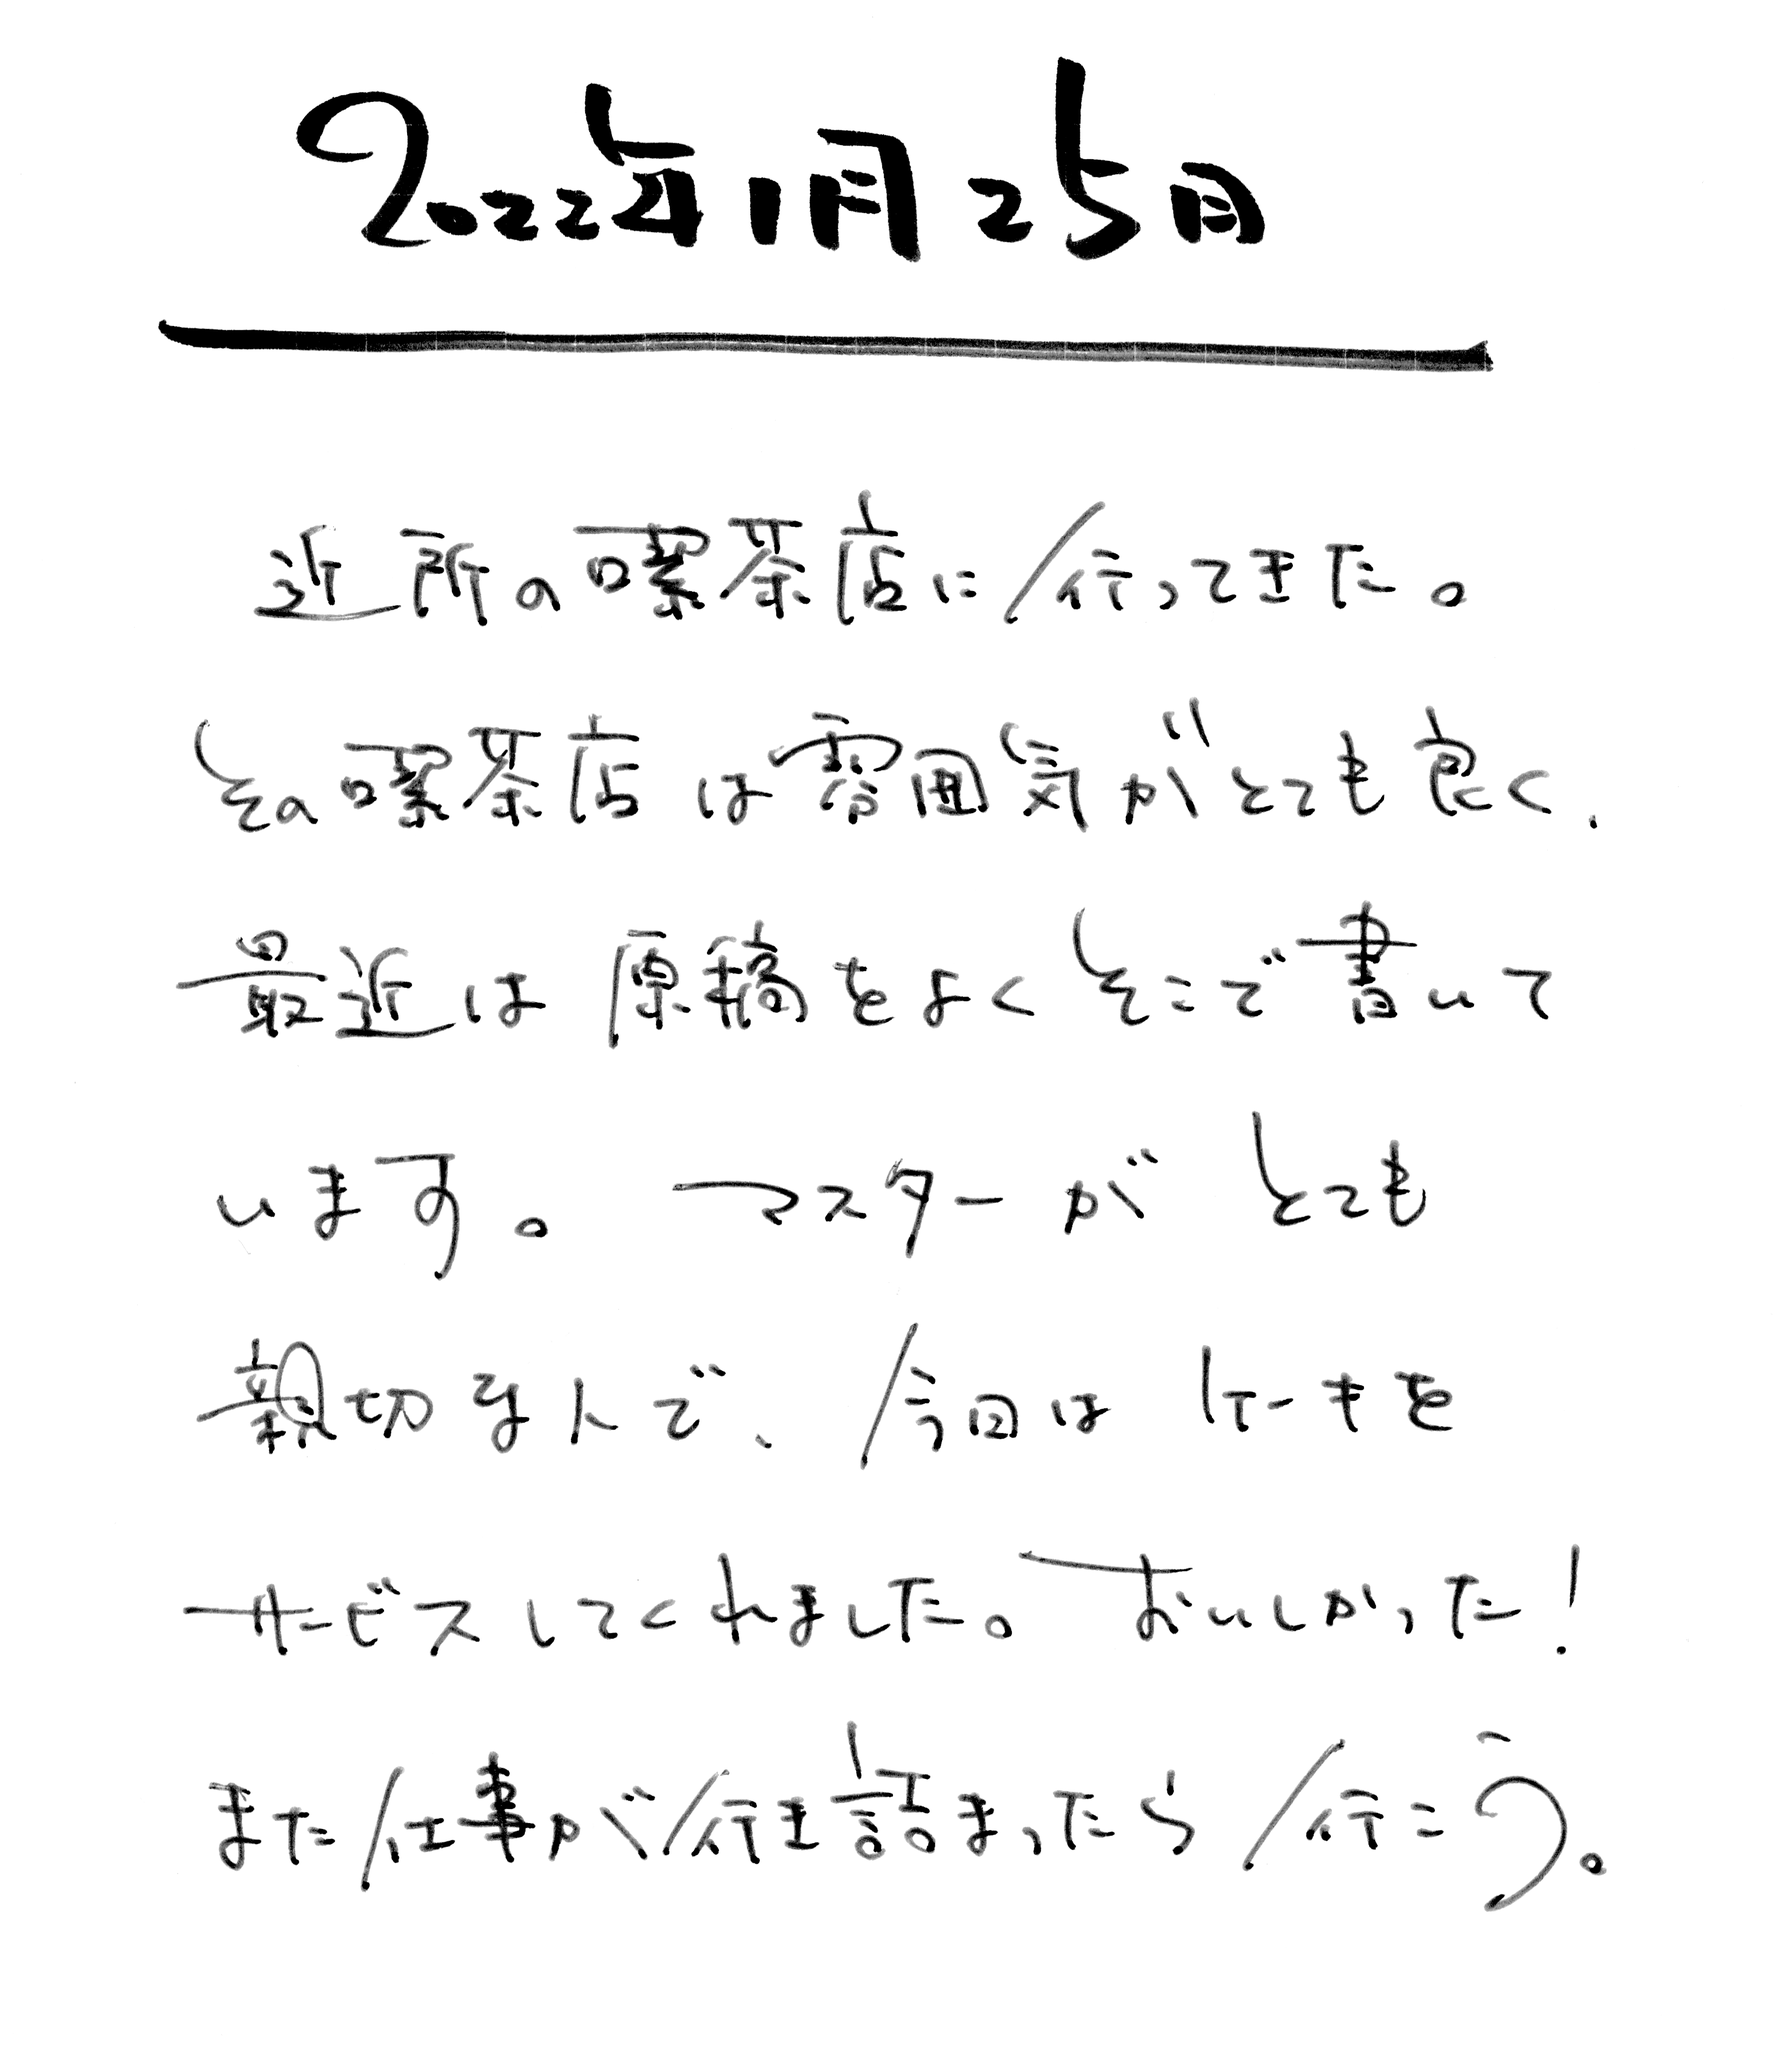 2022年1月25日
近所の喫茶店に行ってきた。
その喫茶店は雰囲気がとても良く、
最近は原稿をよくそこで書いて
います。マスターがとても
親切な人で、今回はケーキを
サービスしてくれました。おいしかった!
また仕事が行き詰まったら行こう。